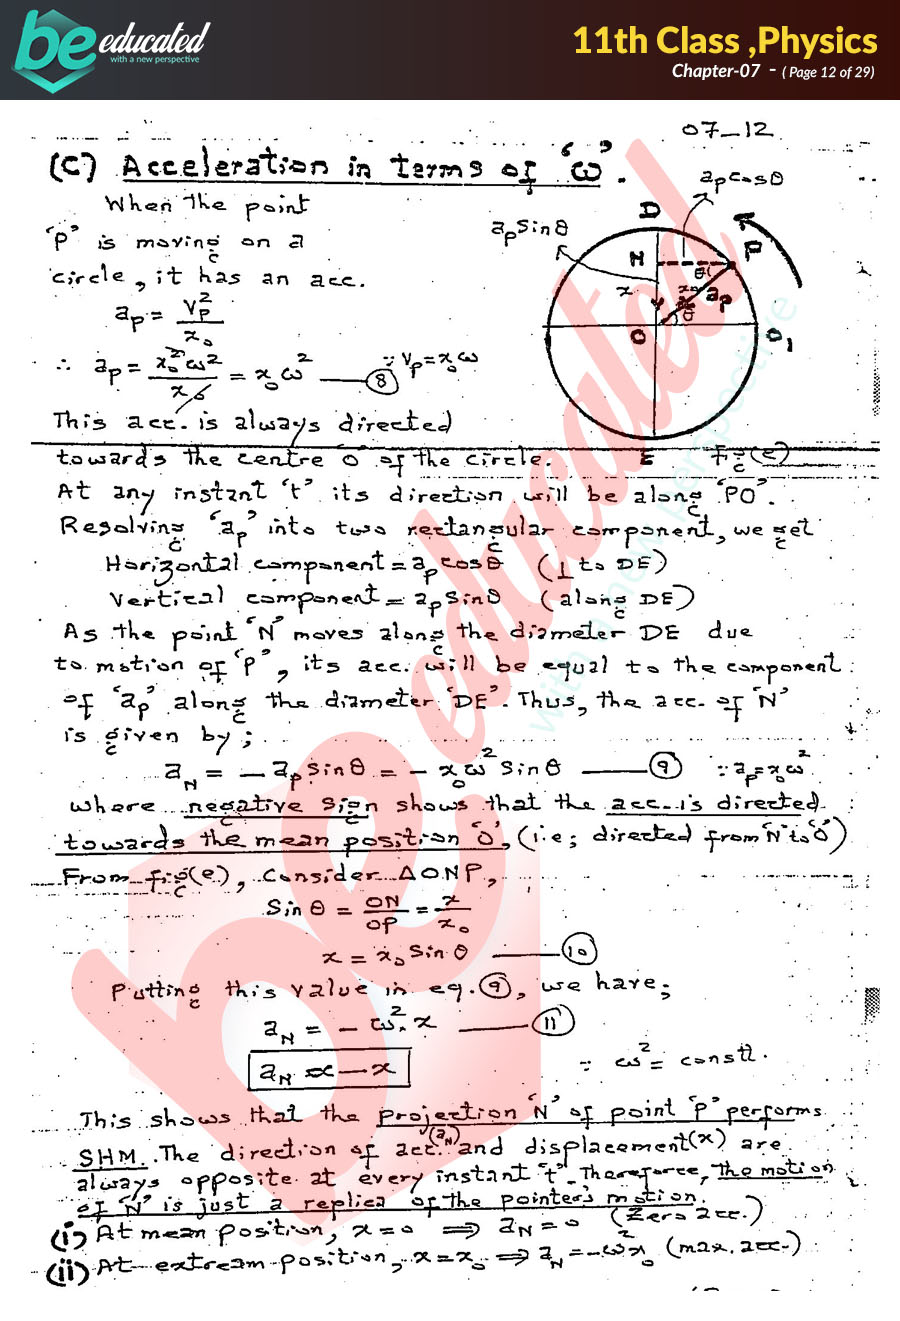 be educated
with a new perspective
11th Class ,Physics
Chapter-07 - ( Page 12 of 29)
07-12
(C) Acceleration in terms of 'ω'.
When the point
'P' is moving on a
circle, it has an acc.
aₚ = Vₚ²/x₀
∴ aₚ = x₀²ω²/x₀ = x₀ω² —— (8) ∵ Vₚ = x₀ω
This acc. is always directed
aₚcosθ
aₚsinθ
D
N
P
θ
x
x₀
aₚ
θ
O
O₁
E
Fig(e)
towards the centre O of the circle.
At any instant 't' its direction will be along 'PO'.
Resolving 'aₚ' into two rectangular component, we get
Horizontal component = aₚcosθ (⊥ to DE)
Vertical component = aₚsinθ (along DE)
As the point 'N' moves along the diameter DE due
to motion of 'P', its acc. will be equal to the component
of 'aₚ' along the diameter 'DE'. Thus, the acc. of 'N'
is given by;
a_N = - aₚsinθ = - x₀ω² Sinθ —— (9) ∵ aₚ = x₀ω²
where negative sign shows that the acc. is directed
towards the mean position 'O', (i.e; directed from 'N' to 'O')
From fig(e), Consider ΔONP,
Sin θ = ON/OP = x/x₀
x = x₀ Sin θ —— (10)
Putting this value in eq. (9), we have;
a_N = - ω². x —— (11)
a_N ∝ - x ∵ ω² = constt.
This shows that the projection 'N' of point 'P' performs
SHM. The direction of acc. (a_N) and displacement (x) are
always opposite at every instant 't'. Therefore, the motion
of 'N' is just a replica of the pointer's motion.
(i) At mean position, x = 0 ⟹ a_N = 0 (Zero acc.)
(ii) At extream position, x = x₀ ⟹ a_N = -ω²x₀ (max. acc.)
be educated
with a new perspective